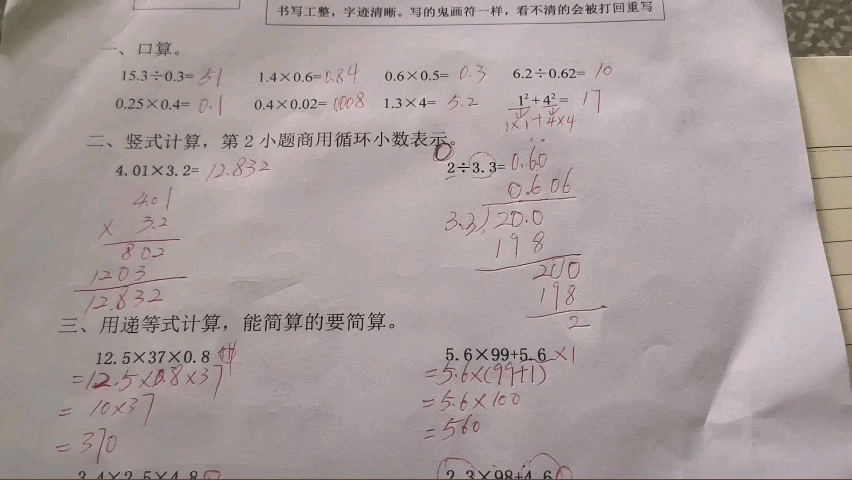 书写工整，字迹清晰。写的鬼画符一样，看不清的会被打回重写
一、口算。
15.3÷0.3= 51 1.4×0.6= 0.84 0.6×0.5= 0.3 6.2÷0.62= 10
0.25×0.4= 0.1 0.4×0.02= 0.008 1.3×4= 5.2 1²+4²= 17
1×1+4×4
二、竖式计算，第 2 小题商用循环小数表示。
4.01×3.2= 12.832 2÷3.3= 0.6̇0̇
4.01 0.606
× 3.2 3.3 20.0
802 198
1203 200
12.832 198
2
三、用递等式计算，能简算的要简算。
12.5×37×0.8 5.6×99+5.6 ×1
=12.5×0.8×37 =5.6×(99+1)
=10×37 =5.6×100
=370 =560
3.4×2.5×4.8 2.3×98+4.6